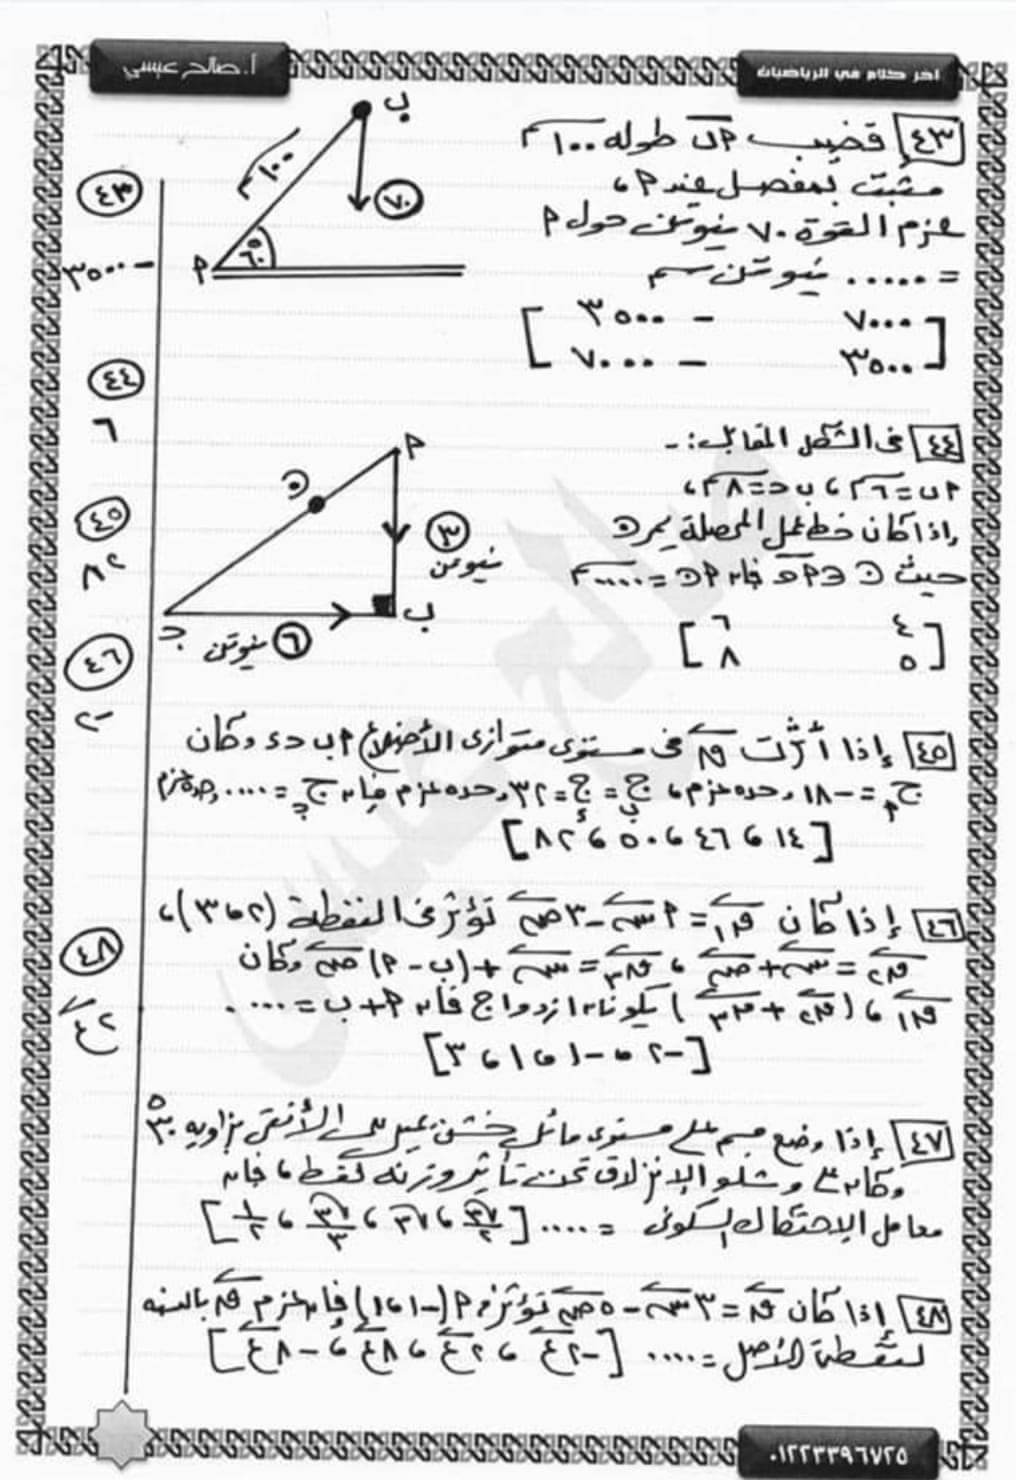 أ.صالح عيسي
اخر كلام في الرياضيات
٤٣ قضيب أب طوله ١٠٠سم
مثبت بمفصل عند أ ،
عزم القوة ٧٠ نيوتن حول أ
= ..... نيوتن سم
[ ٧٠٠٠ − ٣٥٠٠
٣٥٠٠ − ٧٠٠٠ ]
ب
١٠٠سم
٧٠
٦٠°
أ
٤٣
−٣٥٠٠
٤٤
٦
٤٥
٨٢
٤٦
−٢
٤٨
٢ع
٤٤ فى الشكل المقابل :-
أب = ٦سم ، ب ج = ٨سم ،
إذا كان خط عمل المحصلة يمر بـ
حيث ن ∈ أج فإن أن = ..... سم
[ ٤ ٦
٥ ٨ ]
أ
ن
٣
نيوتن
ب
٦ نيوتن
ج
٤٥ إذا أثرت ق فى مستوى متوازى الأضلاع أ ب ج د وكان
ج أ = −١٨ وحده عزم ، ج ب = ج د = ٣٢ وحده عزم فإن ج ج = .... وحدة عزم
[ ١٤ ، ٤٦ ، ٥٠ ، ٨٢ ]
٤٦ إذا كان ق١ = أ س − ٣ ص تؤثر فى النقطة (٢ ، ٣) ،
ق٢ = س + ص ، ق٣ = س + (ب − أ) ص وكان
ق١ ، (ق٢ + ق٣) يكونان ازدواج فإن أ + ب = ....
[ −٢ ، −١ ، ١ ، ٣ ]
٤٧ إذا وضع جسم على مستوى مائل خشن يميل على الأفقى بزاويه ٣٠°
وكان على وشك الإنزلاق تحت تأثير وزنه فقط ، فإن
معامل الإحتكاك السكونى = .... [ √٣/٢ ، √٣ ، √٣/٣ ، ١/٢ ]
٤٨ إذا كان ق = ٣ س − ٥ ص تؤثر فى أ (−١ ، ١) فإن عزم ق بالنسبه
لنقطة الأصل = .... [ −٢ع ، ٢ع ، ٨ع ، −٨ع ]
٠١٢٢٣٣٩٦٧٢٥